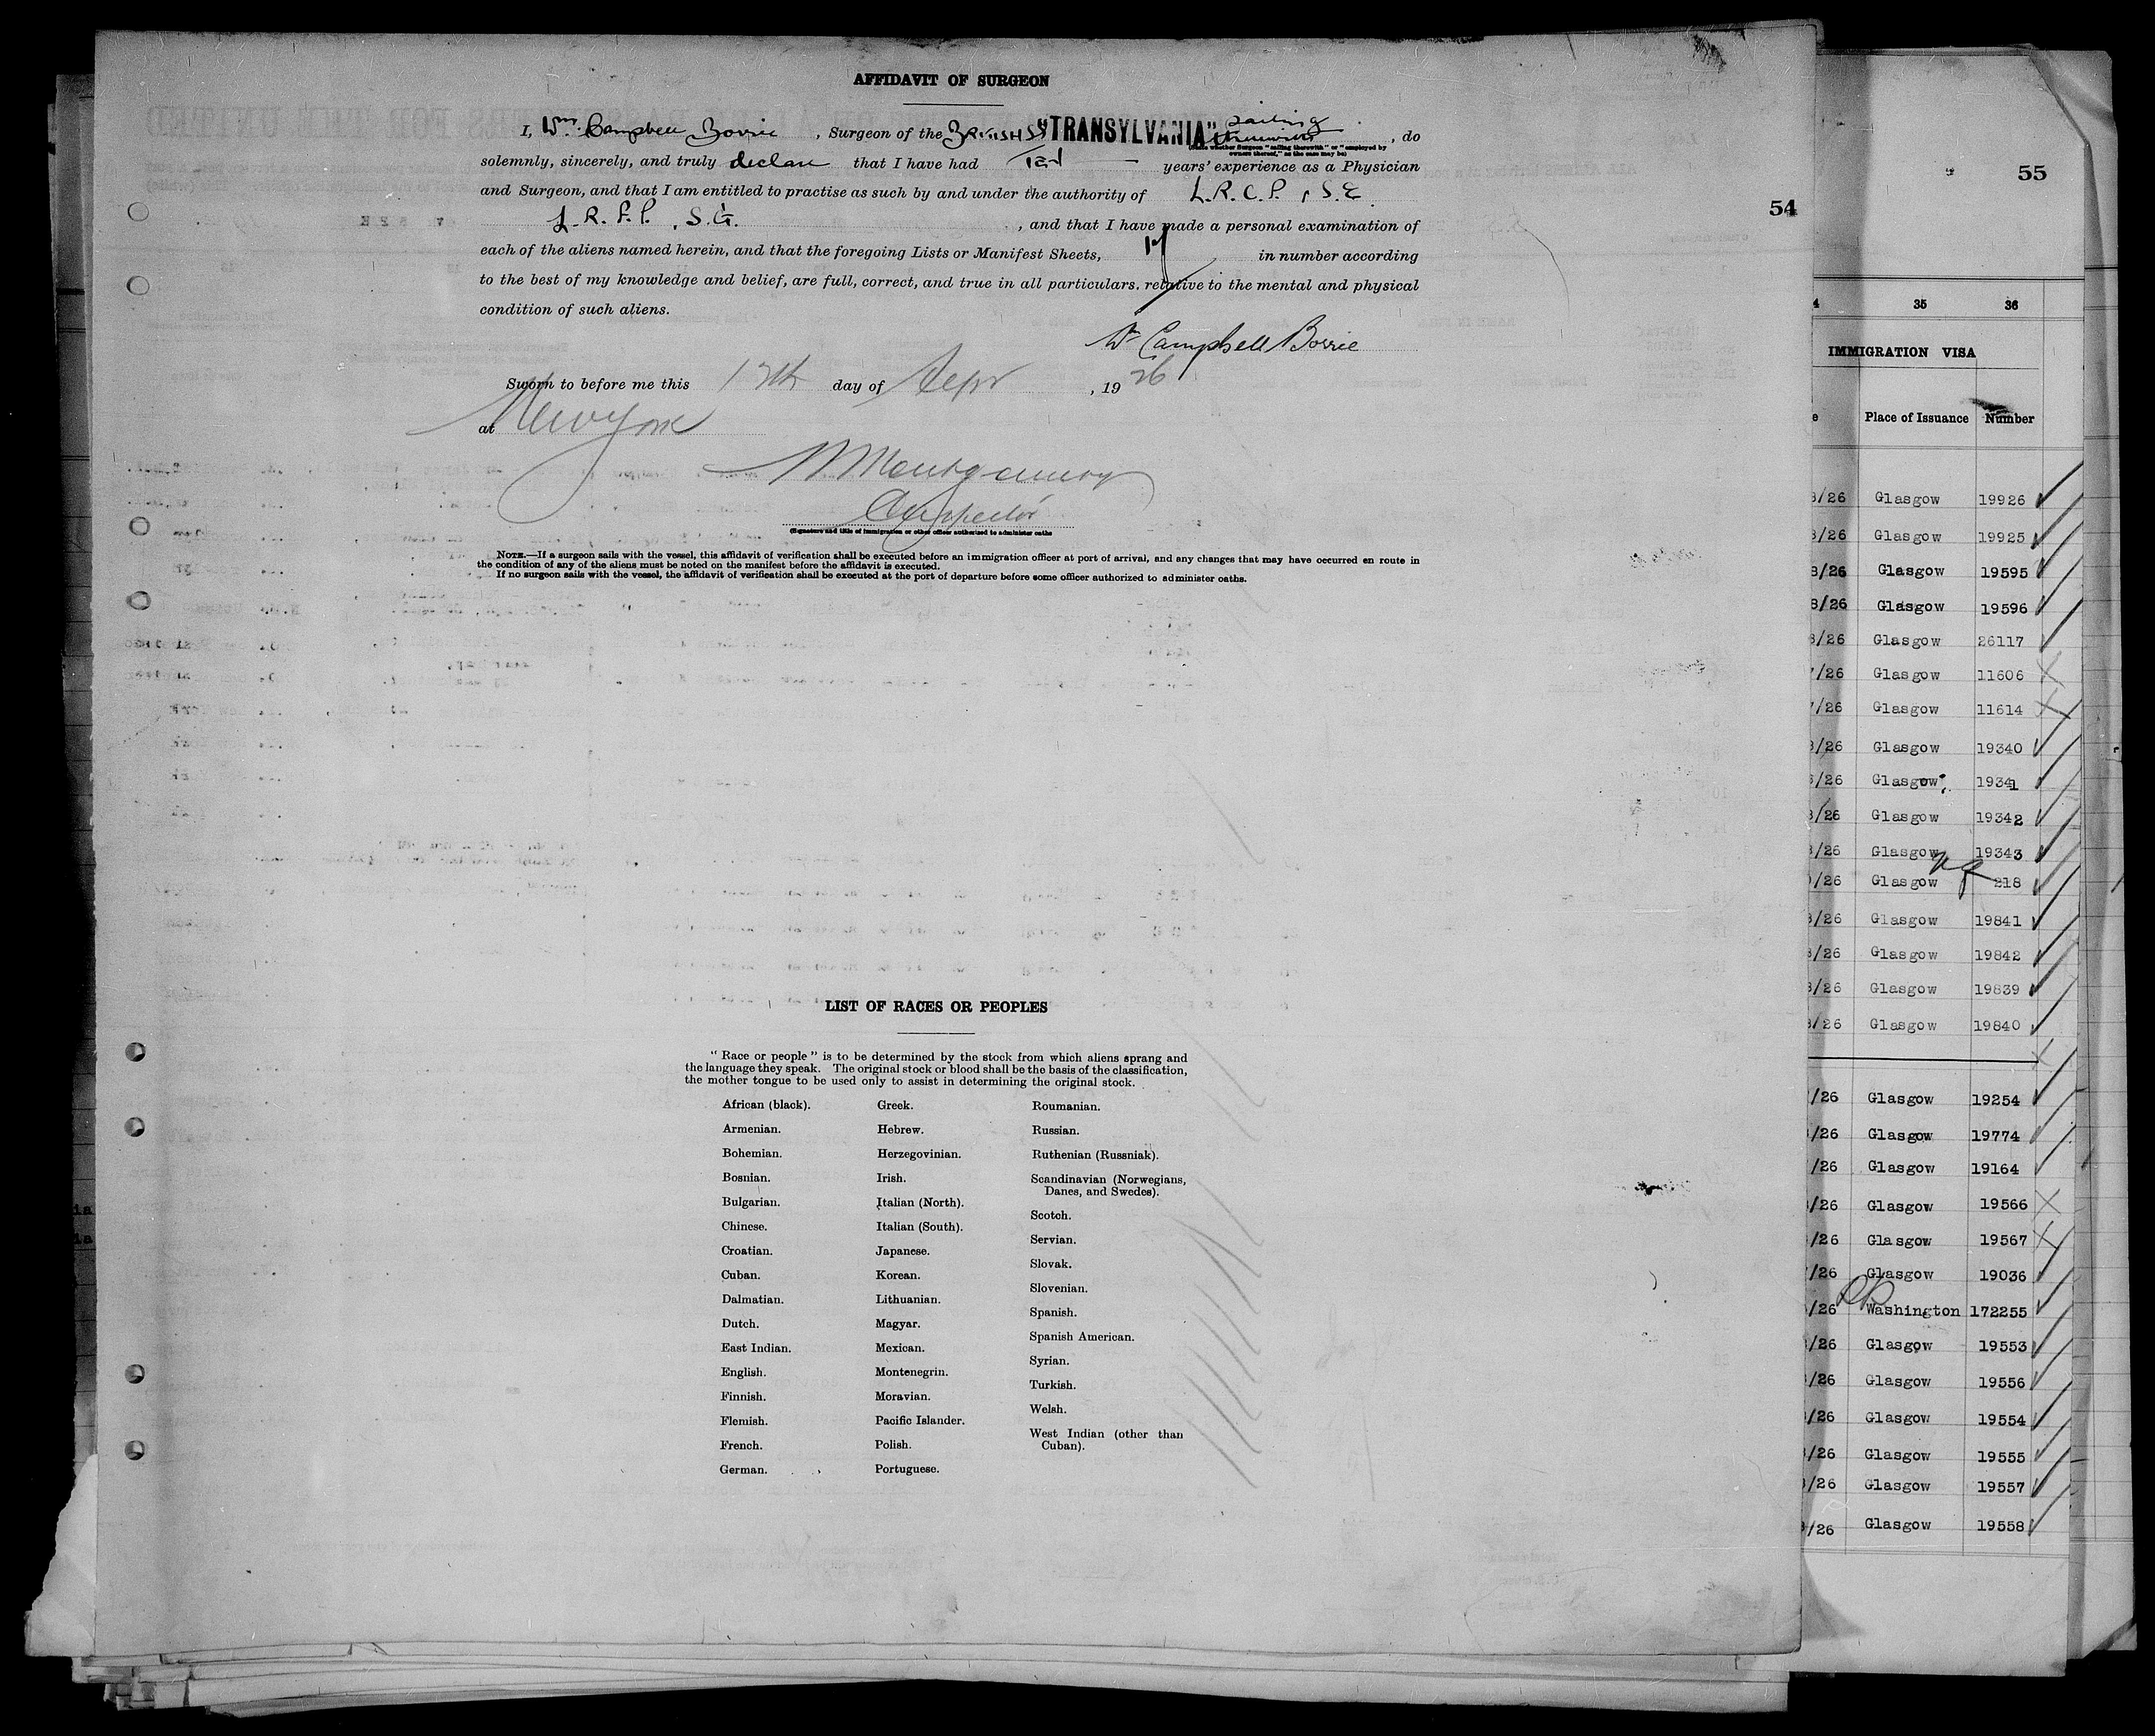 AFFIDAVIT OF SURGEON
I, Wm. Campbell Borrie, Surgeon of the BRITISH SS "TRANSYLVANIA" sailing therewith, do
(State whether Surgeon "sailing therewith" or "employed by
owners thereof," as the case may be)
solemnly, sincerely, and truly declare that I have had Ten years' experience as a Physician
and Surgeon, and that I am entitled to practise as such by and under the authority of L.R.C.P., S.E.
L.R.F.P., S.G., and that I have made a personal examination of
each of the aliens named herein, and that the foregoing Lists or Manifest Sheets, in number according
to the best of my knowledge and belief, are full, correct, and true in all particulars, relative to the mental and physical
condition of such aliens.
Wm Campbell Borrie
Sworn to before me this 12th day of Sept, 1926
at New York
Montgomery
Inspector
(Signature and title of immigration or other officer authorized to administer oaths
NOTE.—If a surgeon sails with the vessel, this affidavit of verification shall be executed before an immigration officer at port of arrival, and any changes that may have occurred en route in
the condition of any of the aliens must be noted on the manifest before the affidavit is executed.
If no surgeon sails with the vessel, the affidavit of verification shall be executed at the port of departure before some officer authorized to administer oaths.
LIST OF RACES OR PEOPLES
" Race or people " is to be determined by the stock from which aliens sprang and
the language they speak. The original stock or blood shall be the basis of the classification,
the mother tongue to be used only to assist in determining the original stock.
African (black).
Armenian.
Bohemian.
Bosnian.
Bulgarian.
Chinese.
Croatian.
Cuban.
Dalmatian.
Dutch.
East Indian.
English.
Finnish.
Flemish.
French.
German.
Greek.
Hebrew.
Herzegovinian.
Irish.
Italian (North).
Italian (South).
Japanese.
Korean.
Lithuanian.
Magyar.
Mexican.
Montenegrin.
Moravian.
Pacific Islander.
Polish.
Portuguese.
Roumanian.
Russian.
Ruthenian (Russniak).
Scandinavian (Norwegians,
Danes, and Swedes).
Scotch.
Servian.
Slovak.
Slovenian.
Spanish.
Spanish American.
Syrian.
Turkish.
Welsh.
West Indian (other than
Cuban).
54
55
35 36
IMMIGRATION VISA
Place of Issuance Number
8/26 Glasgow 19926
8/26 Glasgow 19925
8/26 Glasgow 19595
8/26 Glasgow 19596
8/26 Glasgow 26117
7/26 Glasgow 11606
7/26 Glasgow 11614
8/26 Glasgow 19340
/26 Glasgow 19341
8/26 Glasgow 19342
8/26 Glasgow 19343
/26 Glasgow 218
8/26 Glasgow 19841
8/26 Glasgow 19842
8/26 Glasgow 19839
8/26 Glasgow 19840
/26 Glasgow 19254
/26 Glasgow 19774
/26 Glasgow 19164
/26 Glasgow 19566
/26 Glasgow 19567
/26 Glasgow 19036
/26 Washington 172255
/26 Glasgow 19553
/26 Glasgow 19556
/26 Glasgow 19554
/26 Glasgow 19555
/26 Glasgow 19557
/26 Glasgow 19558